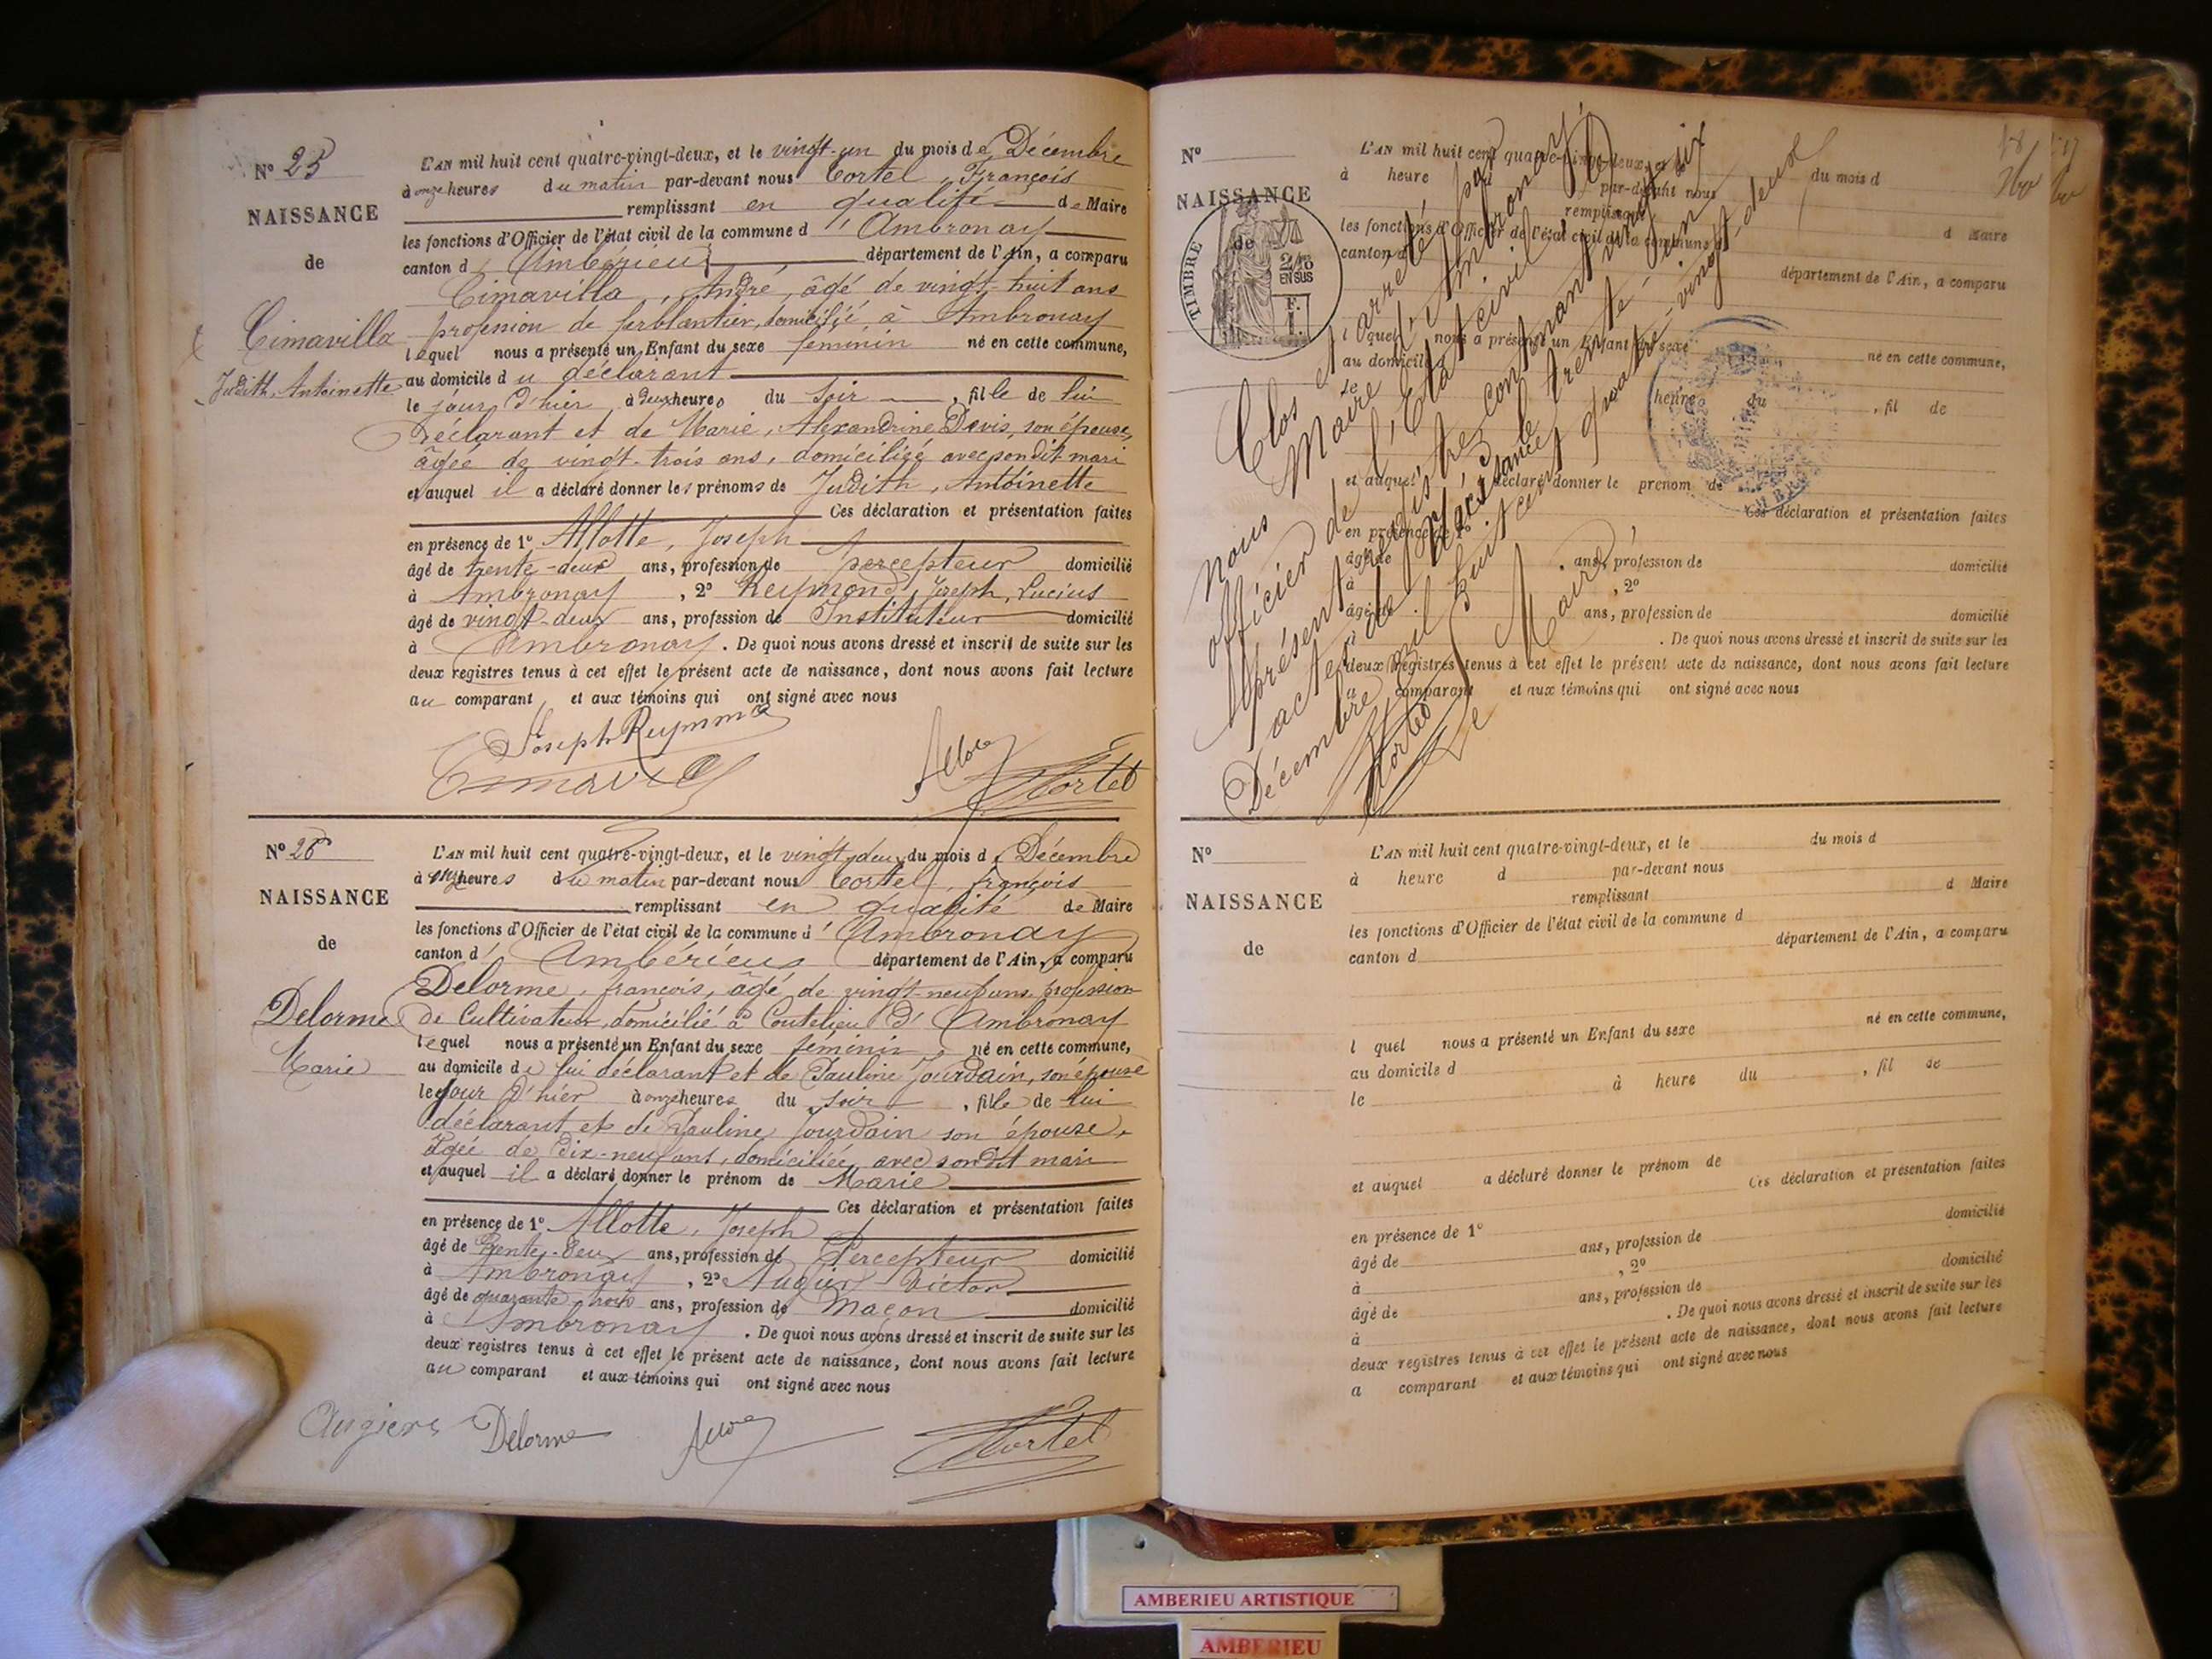 N° 25
NAISSANCE
de
Cimavilla
Judith, Antoinette
L'AN mil huit cent quatre-vingt-deux, et le vingt-un du mois de Décembre
à onze heures du matin par-devant nous Cortel, François
remplissant en qualité de Maire
les fonctions d'Officier de l'état civil de la commune d'Ambronay
canton d'Ambérieu département de l'Ain, a comparu
Cimavilla, André, âgé de vingt-huit ans
profession de ferblantier, domicilié à Ambronay
lequel nous a présenté un Enfant du sexe féminin né en cette commune,
au domicile du déclarant
le jour d'hier, à heures du soir, fille de lui
déclarant et de Marie, Alexandrine Devis, son épouse,
âgée de vingt-trois ans, domiciliée avec son dit mari
et auquel il a déclaré donner les prénoms de Judith, Antoinette
Ces déclaration et présentation faites
en présence de 1° Allotte, Joseph
âgé de trente-deux ans, profession de percepteur domicilié
à Ambronay, 2° Reymond, Joseph, Lucius
âgé de vingt-deux ans, profession de Instituteur domicilié
à Ambronay. De quoi nous avons dressé et inscrit de suite sur les
deux registres tenus à cet effet le présent acte de naissance, dont nous avons fait lecture
au comparant et aux témoins qui ont signé avec nous
Joseph Reymond
Cimavilla
Cortel
N° 26
NAISSANCE
de
Delorme
Marie
L'AN mil huit cent quatre-vingt-deux, et le vingt-deux du mois de Décembre
à onze heures du matin par-devant nous Cortel, françois
remplissant en qualité de Maire
les fonctions d'Officier de l'état civil de la commune d'Ambronay
canton d'Ambérieu département de l'Ain, a comparu
Delorme, françois, âgé de vingt-neuf ans profession
de Cultivateur, domicilié à Coutelieu d'Ambronay
lequel nous a présenté un Enfant du sexe féminin, né en cette commune,
au domicile de lui déclarant et de Pauline Jourdain, son épouse
le jour d'hier à onze heures du soir, fille de lui
déclarant et de Pauline Jourdain son épouse,
âgée de dix-neuf ans, domiciliée avec son dit mari
et auquel il a déclaré donner le prénom de Marie
Ces déclaration et présentation faites
en présence de 1° Allotte, Joseph
âgé de trente-deux ans, profession de Percepteur domicilié
à Ambronay, 2° Augier Victor
âgé de quarante-trois ans, profession de Maçon domicilié
à Ambronay. De quoi nous avons dressé et inscrit de suite sur les
deux registres tenus à cet effet le présent acte de naissance, dont nous avons fait lecture
au comparant et aux témoins qui ont signé avec nous
Augier Delorme Cortel
N°
NAISSANCE
de
TIMBRE
2/10
EN SUS
L'AN mil huit cent quatre-vingt-deux, et le du mois d
à heure d par-devant nous
remplissant d Maire
les fonctions d'Officier de l'état civil de la commune d
canton d département de l'Ain, a comparu
l quel nous a présenté un Enfant du sexe né en cette commune,
au domicile
le heure du , fil de
et auquel déclaré donner le prénom de
Ces déclaration et présentation faites
en présence de 1°
âgé de ans, profession de domicilié
à , 2°
âgé de ans, profession de domicilié
à . De quoi nous avons dressé et inscrit de suite sur les
deux registres tenus à cet effet le présent acte de naissance, dont nous avons fait lecture
a comparant et aux témoins qui ont signé avec nous
Clos et arrêté par
nous Maire d'Ambronay,
officier de l'État civil, le
présent registre contenant vingt-six
actes de Naissance, le trente un
Décembre mil huit cent quatre-vingt-deux
Le Maire
Cortel
N°
NAISSANCE
de
L'AN mil huit cent quatre-vingt-deux, et le du mois d
à heure d par-devant nous
remplissant d Maire
les fonctions d'Officier de l'état civil de la commune d
canton d département de l'Ain, a comparu
l quel nous a présenté un Enfant du sexe né en cette commune,
au domicile d
le à heure du , fil de
et auquel a déclaré donner le prénom de
Ces déclaration et présentation faites
en présence de 1° domicilié
âgé de ans, profession de
à , 2° domicilié
âgé de ans, profession de
à . De quoi nous avons dressé et inscrit de suite sur les
deux registres tenus à cet effet le présent acte de naissance, dont nous avons fait lecture
a comparant et aux témoins qui ont signé avec nous
AMBERIEU ARTISTIQUE
AMBERIEU